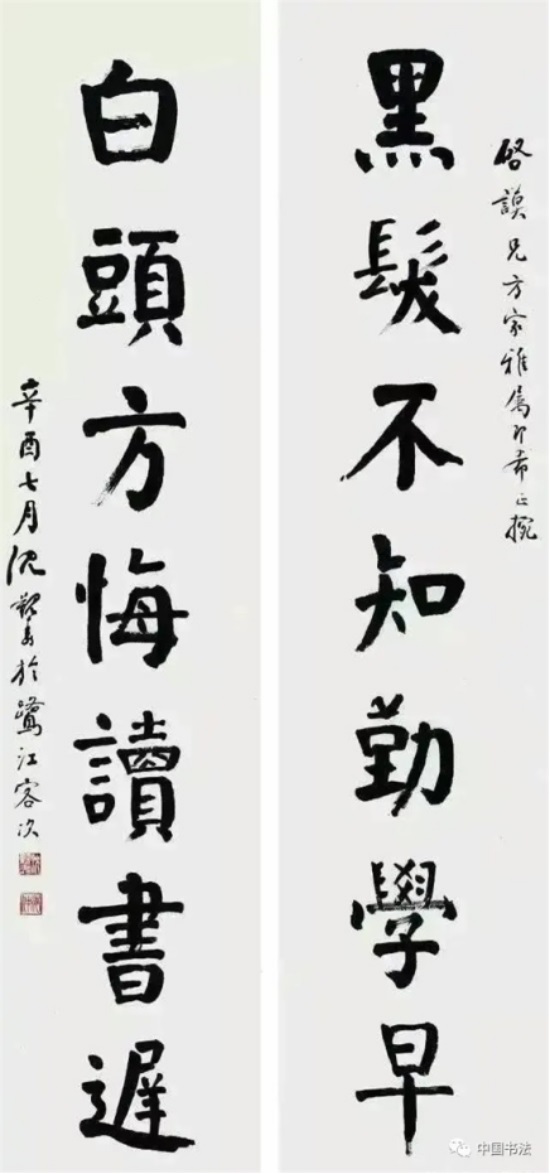 啓謨兄方家雅屬即希正捥
黑髮不知勤學早
白頭方悔讀書遲
辛酉七月沈覲壽於鷺江客次
中国书法